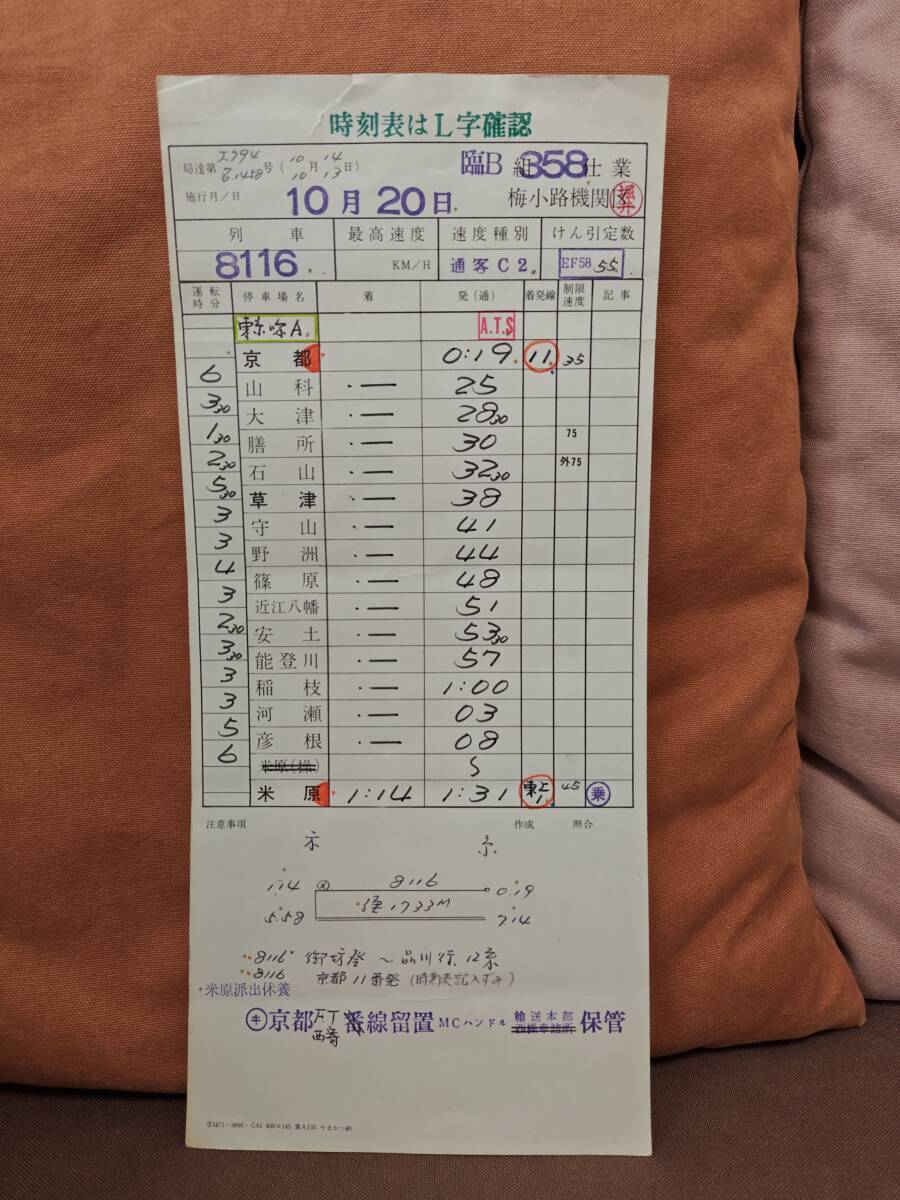 時刻表はL字確認
局達第 工794 号 (10月14日)
10.13
臨B 組 358 仕業
施行月/日 10月20日 梅小路機関区 堀井
列車 最高速度 速度種別 けん引定数
8116 KM/H 通客C2 EF58 55
運転時分 停車場名 着 発(通) 着発線 制限速度 記事
A A.T.S
京都 0:19 11 35
6
山科 ・― 25
3 30
大津 ・― 28 30
1 30
膳所 ・― 30 75
2 30
石山 ・― 32 30 外75
5 30
草津 ・― 38
3
守山 ・― 41
3
野洲 ・― 44
4
篠原 ・― 48
3
近江八幡 ・― 51
2 30
安土 ・― 53 30
3 30
能登川 ・― 57
3
稲枝 ・― 1:00
3
河瀬 ・― 03
5
彦根 ・― 08
6
米原(操)
米原 1:14 1:31 東上1 45 乗
注意事項 作成 照合
1:14 8116 0:19
5:58 1733M 7:14
8116 御坊発 ~ 品川行 12系
8116 京都11番発 (時刻表記入ずみ)
米原派出休養
キ 京都 番線留置 MCハンドル 輸送本部 保管
西寄